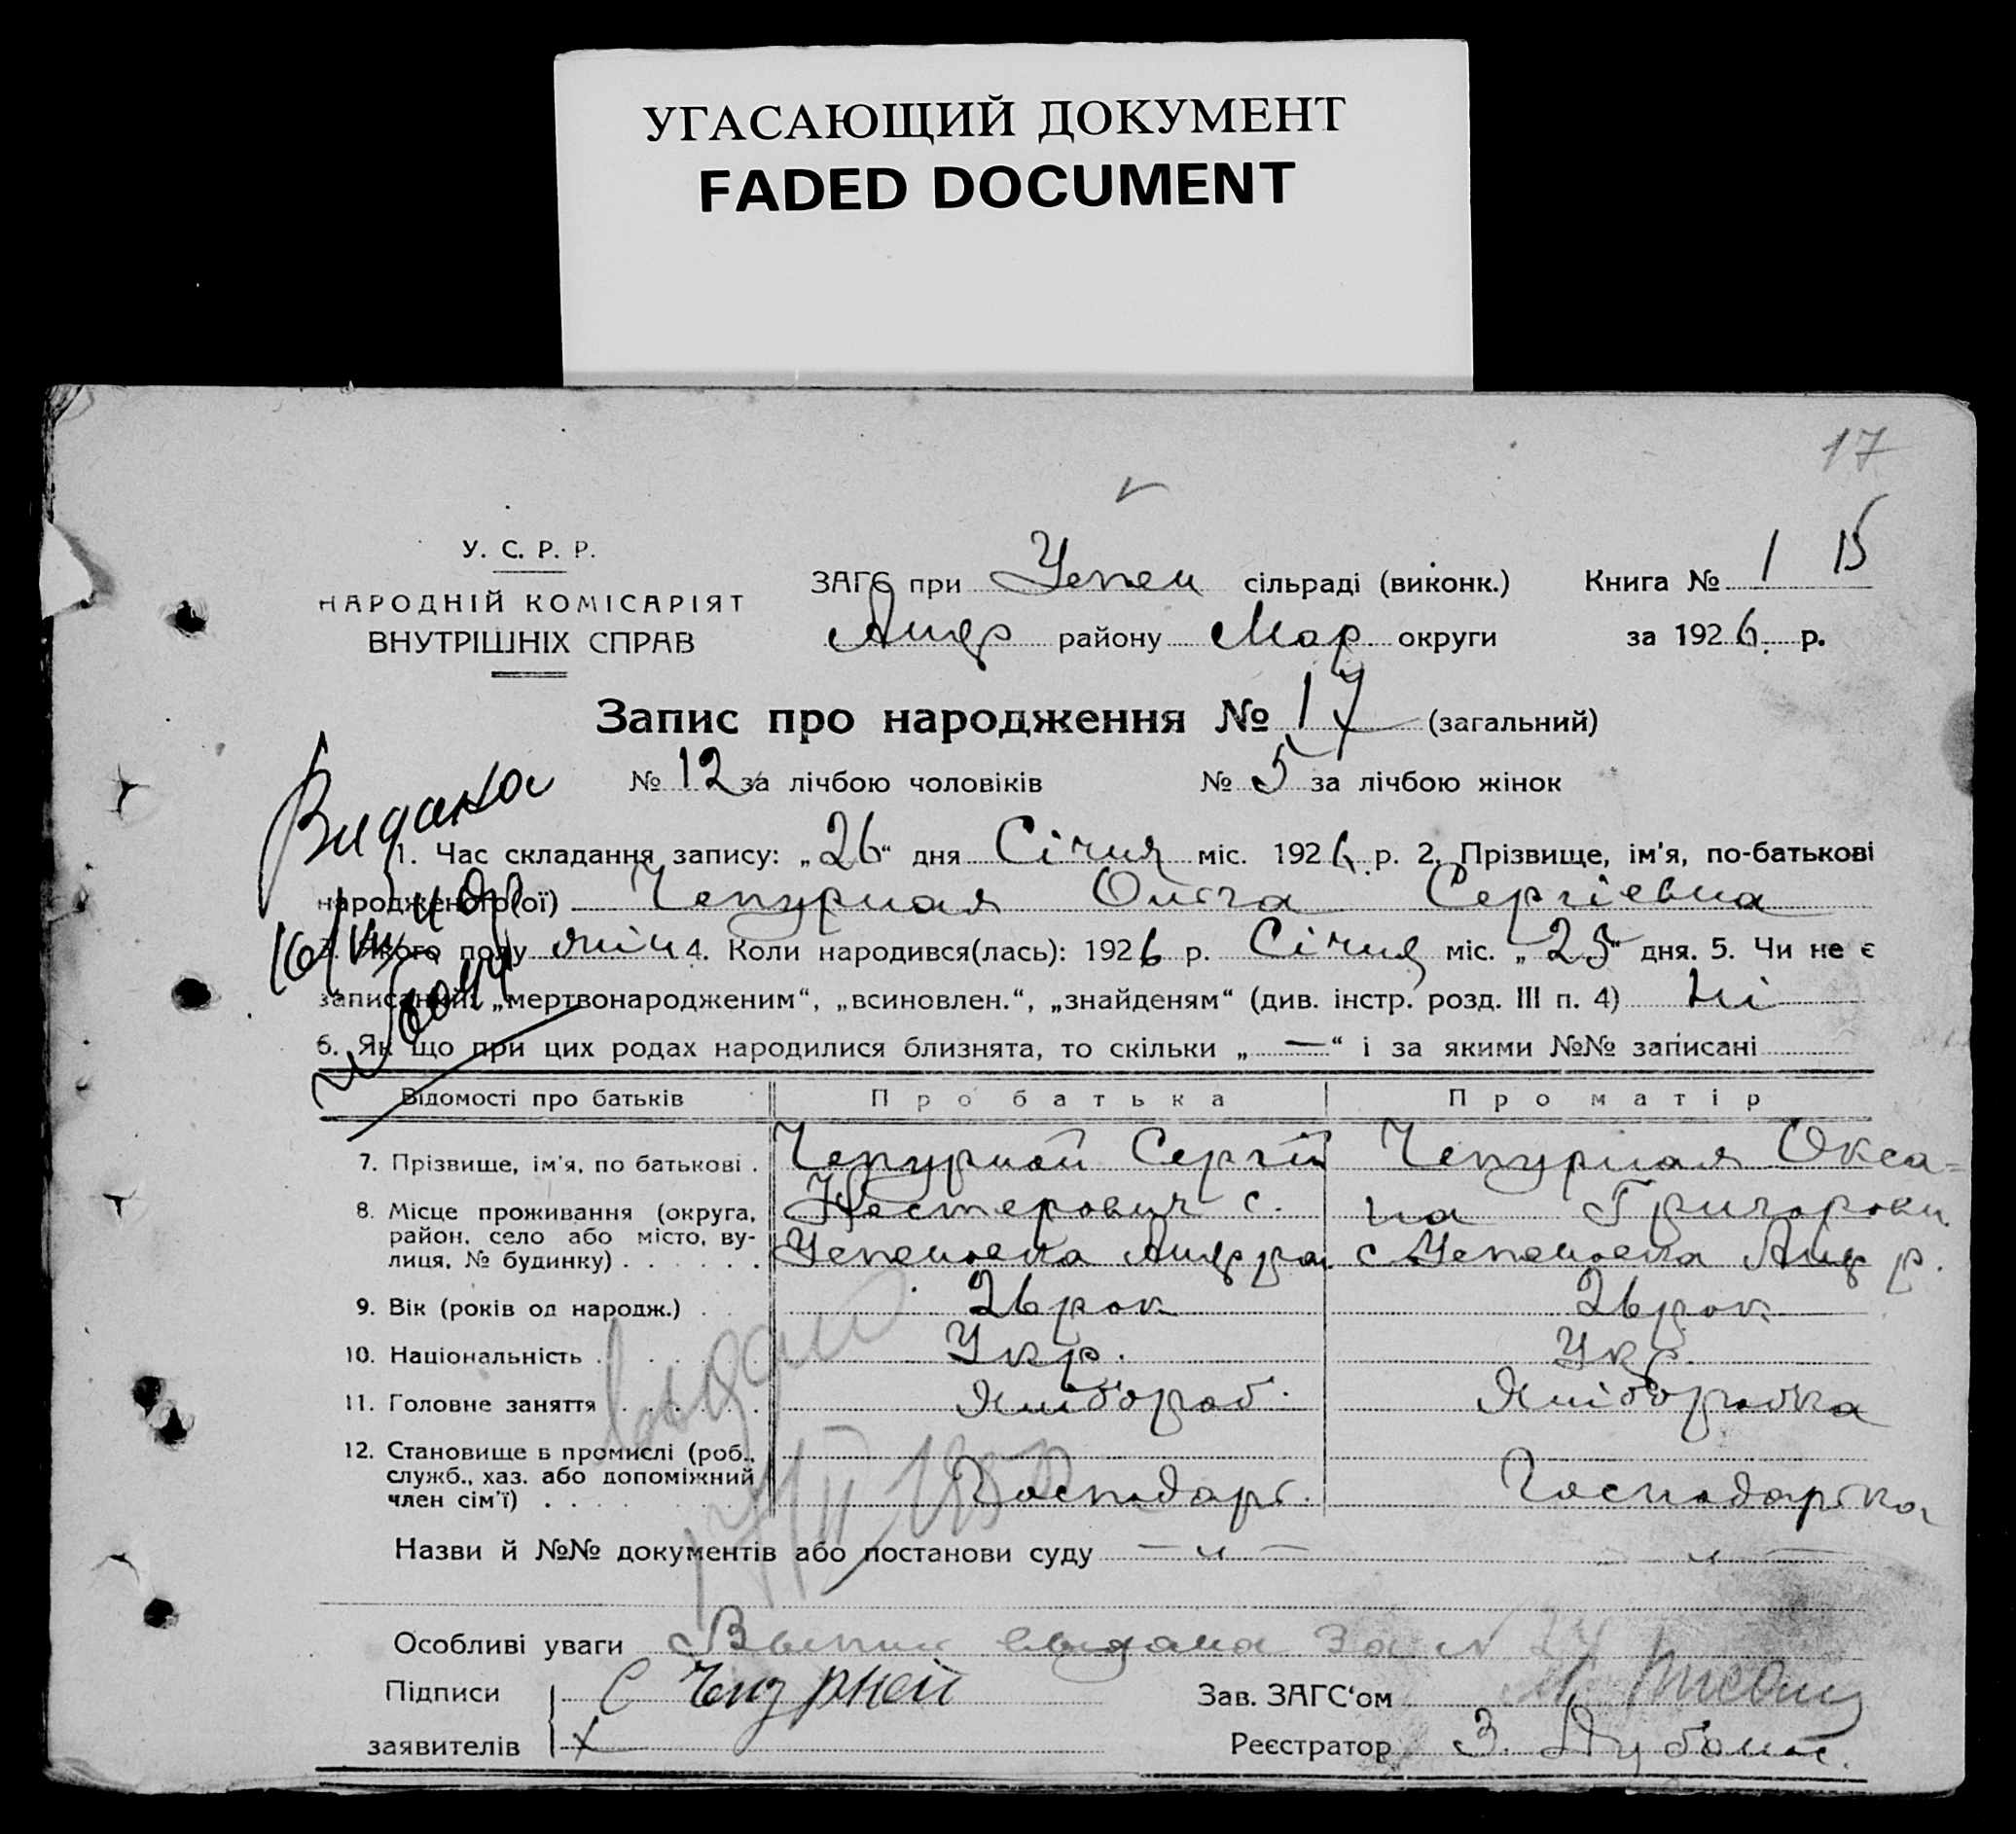 УГАСАЮЩИЙ ДОКУМЕНТ
FADED DOCUMENT
17
У. С. Р. Р.
НАРОДНІЙ КОМІСАРІЯТ
ВНУТРІШНІХ СПРАВ
ЗАГС при Успен сільраді (виконк.) Книга № 1 15
Андр району Мар. округи за 1926 р.
Запис про народження № 17 (загальний)
№ 12 за лічбою чоловіків № 5 за лічбою жінок
Видана
1. Час складання запису: „26“ дня Січня міс. 1926 р. 2. Прізвище, ім'я, по-батькові
народженого(ої) Чепурная Ольга Сергіевна
3. Якого полу жін 4. Коли народився(лась): 1926 р. Січня міс. „25“ дня. 5. Чи не є
записаний: „мертвонародженим“, „всиновлен.“, „знайденям“ (див. інстр. розд. III п. 4) Ні
6. Як що при цих родах народилися близнята, то скільки „—“ і за якими №№ записані
Відомості про батьків Про батька Про матір
7. Прізвище, ім'я, по батькові . Чепурной Сергій Чепурная Окса-
8. Місце проживання (округа, Нестерович с. на Григоровн.
район, село або місто, ву-
лиця, № будинку) . . . . . . Успеновка Андр ра. с Успеновка Андр р.
9. Вік (років од народж.) . 26 рок 26 рок
10. Національність . . . . Укр. Укр.
11. Головне заняття . . . . . Хлібороб. Хліборобка
12. Становище в промислі (роб.,
служб., хаз. або допоміжний
член сім'ї) . . . . Господарь. Господарка
Назви й №№ документів або постанови суду — „ — — „ —
Особливі уваги Выпис выдана за N 24
Підписи С Чепурной Зав. ЗАГС‘ом
заявителів X Реєстратор З.